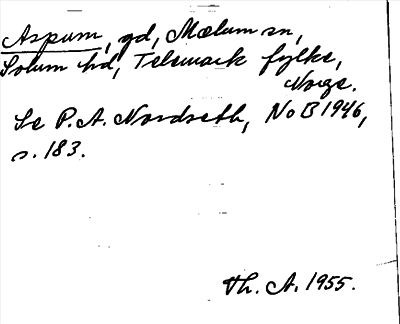 Aspum, gd, Mælum sn,
Solum hd, Telemark fylke,
Norge.
Se P.A. Nordseth, NoB 1946,
s. 183.
Th. A. 1955.